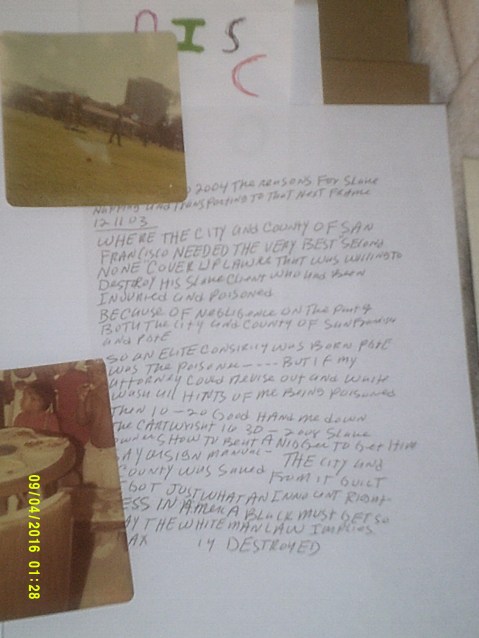 DISC
2004 THE REASONS FOR SLAVE
NAPPING AND TRANSPORTING TO THAT NEXT FRAME
12 11 03
WHERE THE CITY and COUNTY OF SAN
FRANCISCO NEEDED THE VERY BEST SECOND
NONE COVER UP LAWRE THAT WAS WILLING TO
DESTROY HIS SLAVE CLIENT WHO HAD BEEN
INDURIED and POISONED
BECAUSE OF NEGLIGENCE ON THE PART OF
BOTH THE CITY and COUNTY OF
and PG&E
SO AN ELITE WAS BORN PG&E
WAS THE POISONE ---- BUT IF MY
ATTORNEY COULD DEVISE OUT and WHITE
WASH ALL HINTS OF ME BEING POISONED
THEN 10-20 GOOD HAND me DOWN
THE CARTWRIGHT 10 30 - SLAVE
SHOW TO BEAT A NIGGER TO GET HIM
MANUAL - THE CITY and
COUNTY WAS SAVED FROM IT GUILT
GOT JUST WHAT AN RIGHT
ESS IN AMERICA BLACK MUST GET SO
THE WHITE MAN LAW IMPLIES
DESTROYED
09/04/2016 01:28